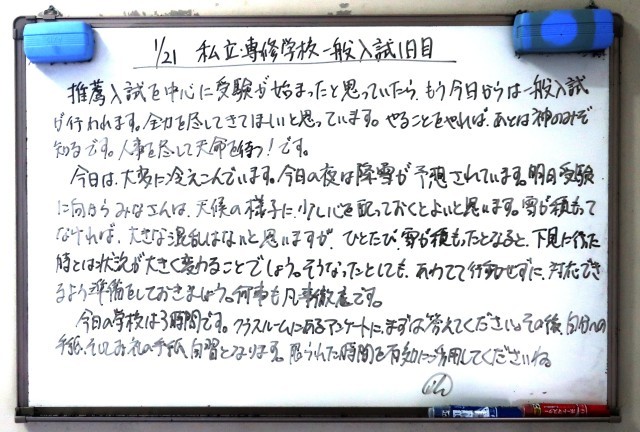 1/21 私立・専修学校一般入試1日目
推薦入試を中心に受験が始まったと思っていたら、もう今日からは一般入試
が行われます。全力を尽くしてきてほしいと思っています。やることをやれば、あとは神のみぞ
知るです。人事を尽して天命を待つ！です。
今日は、大変に冷えこんでいます。今日の夜は降雪が予想されています。明日受験
に向かうみなさんは、天候の様子に、少し心を配っておくとよいと思います。雪が積もって
なければ、大きな混乱はないと思いますが、ひとたび、雪が積もったとなると、下見に行った
時とは状況が大きく変わることでしょう。そうなったとしても、あわてて行動せずに、対応でき
るよう準備をしておきましょう。何事も凡事徹底です。
今日の学校は3時間です。クラスルームにあるアンケートに、まずは答えてください。その後、自分への
手紙、そしてお礼の手紙、自習となります。限られた時間を有効に活用してくださいね。